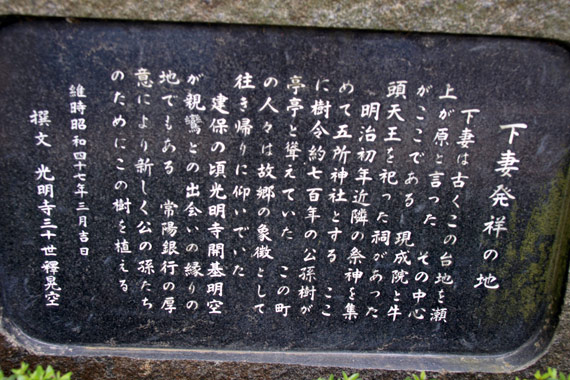 下妻発祥の地
下妻は古くこの台地を瀬
上が原と言った その中心
がここである 現成院と牛
頭天王を祀った祠があった
明治初年近隣の祭神を集
めて五所神社とする ここ
に樹令約七百年の公孫樹が
亭亭と聳えていた この町
の人々は故郷の象徴として
往き帰りに仰いでいた
建保の頃光明寺開基明空
が親鸞との出会いの縁りの
地でもある 常陽銀行の厚
意により新しく公の孫たち
のためにこの樹を植える
維時昭和四十七年三月吉日
撰文 光明寺三十世釋晃空